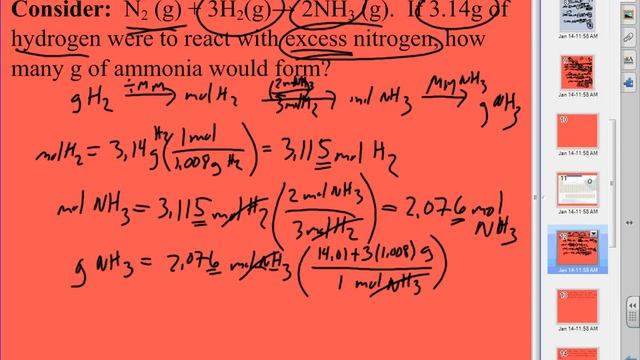 Consider: N₂ (g) + 3H₂(g)→ 2NH₃ (g). If 3.14g of
hydrogen were to react with excess nitrogen, how
many g of ammonia would form?
g H₂ ÷MM → mol H₂ (2 mol NH₃ / 3 mol H₂) → mol NH₃ MM NH₃ → g NH₃
mol H₂ = 3.14 g H₂ (1 mol / 1.008 g H₂) = 3.115 mol H₂
mol NH₃ = 3.115 mol H₂ (2 mol NH₃ / 3 mol H₂) = 2.076 mol NH₃
g NH₃ = 2.076 mol NH₃ (14.01+3(1.008) g / 1 mol NH₃)
Jan 14-11:58 AM
Jan 14-11:58 AM
10
Jan 14-11:58 AM
11
Jan 14-11:58 AM
12
Jan 14-11:58 AM
13
Jan 14-11:58 AM
14